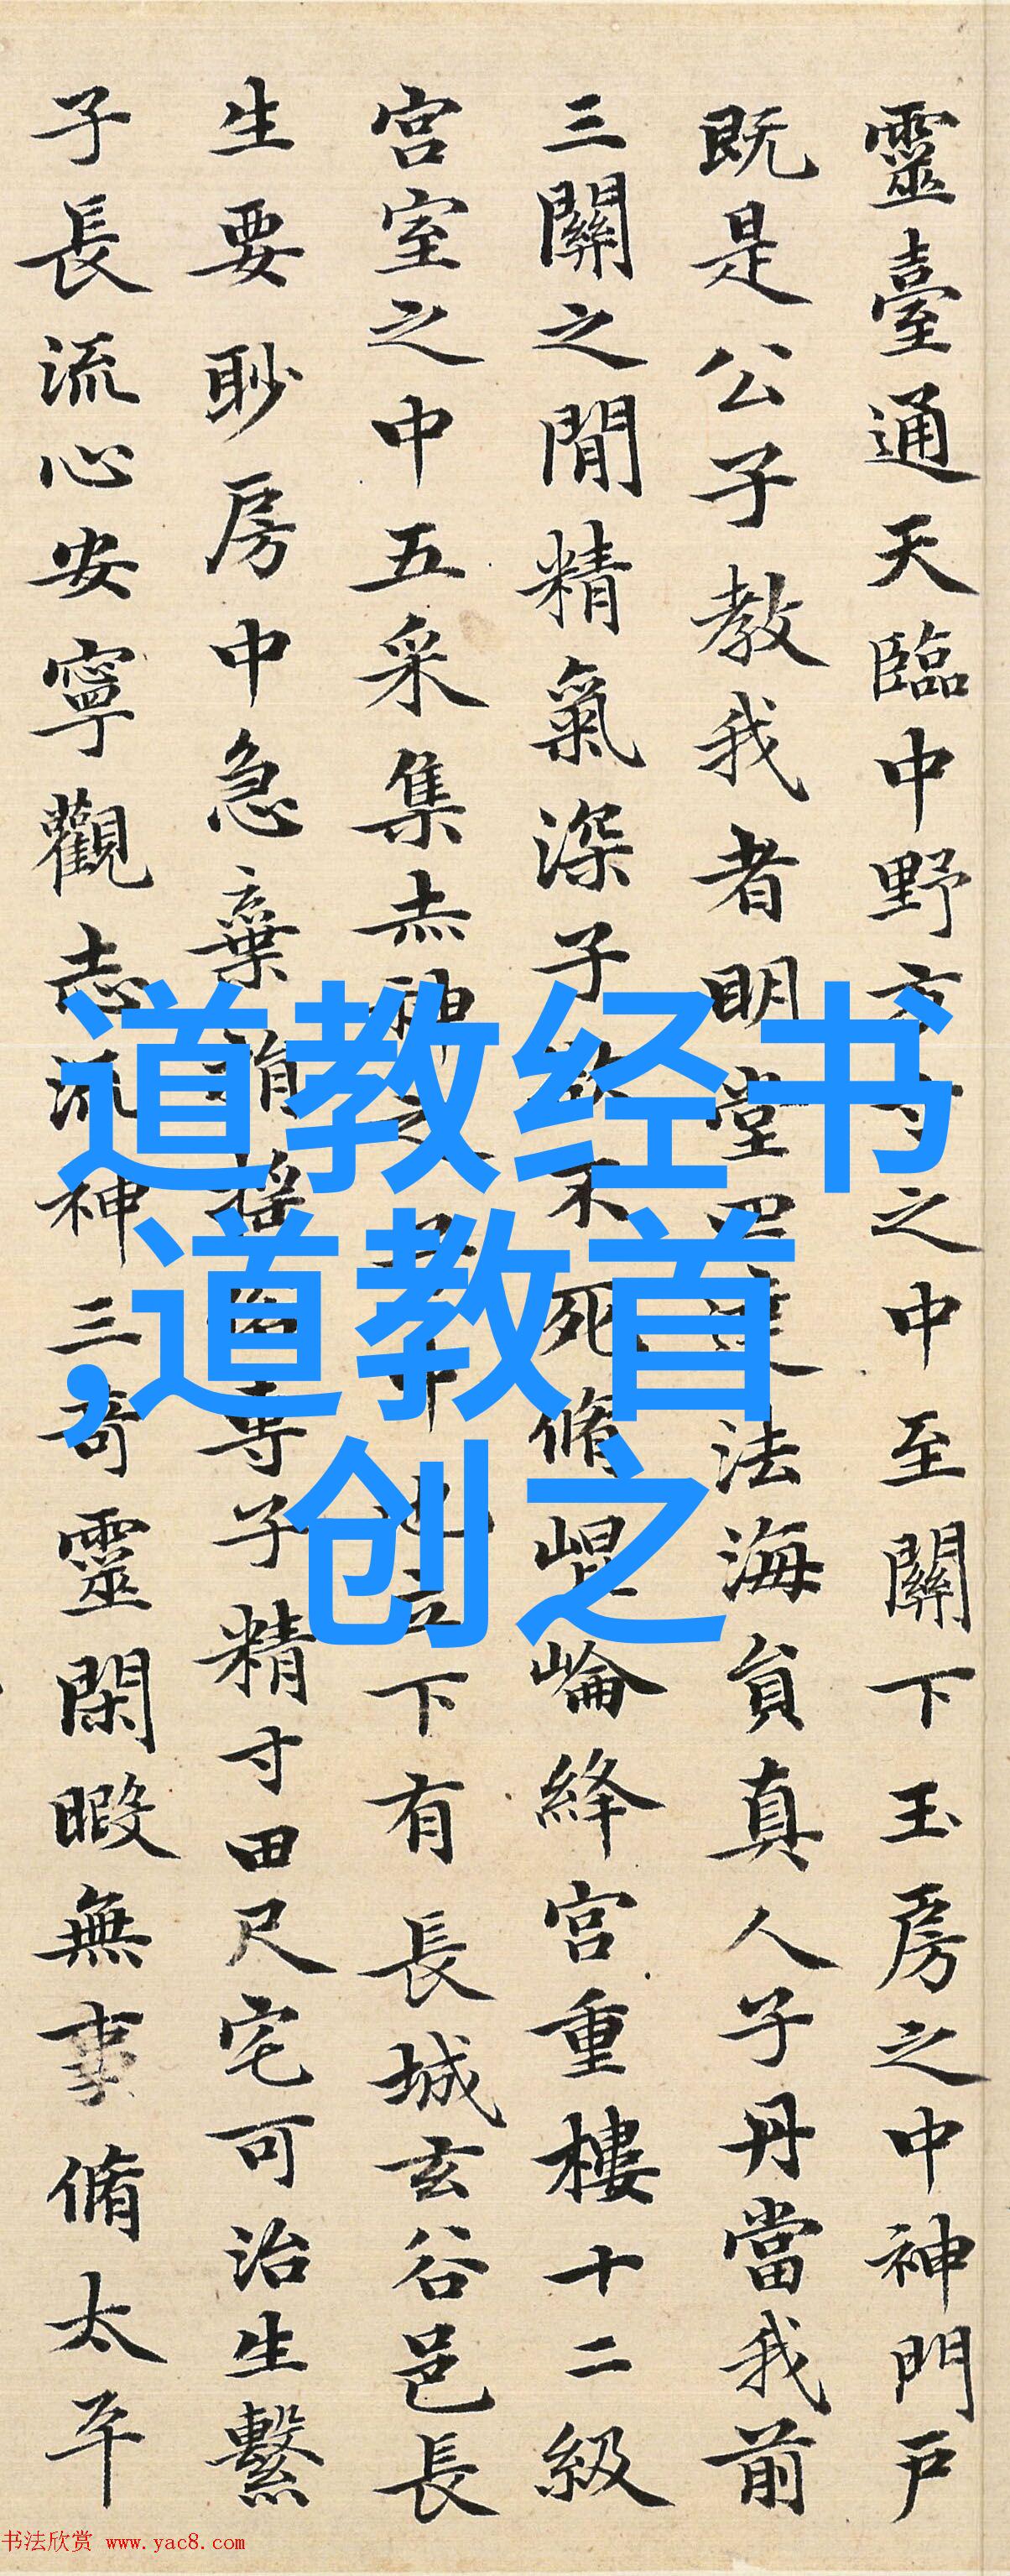 靈臺通天臨中野方寸之中至關下玉房之中神門戶
既是公子教我者明堂四達法海員真人子丹當我前
三關之閒精氣深子欲不死脩崐崘絳宮重樓十二級
宮室之中五采集赤神之子中池立下有長城玄谷邑長
生要眇房中急棄捐搖專子精寸田尺宅可治生繫
子長流心安寧觀志流神三奇靈閑暇無事脩太平
道教经书
,道教首
创之
书法欣赏 www.yac8.com